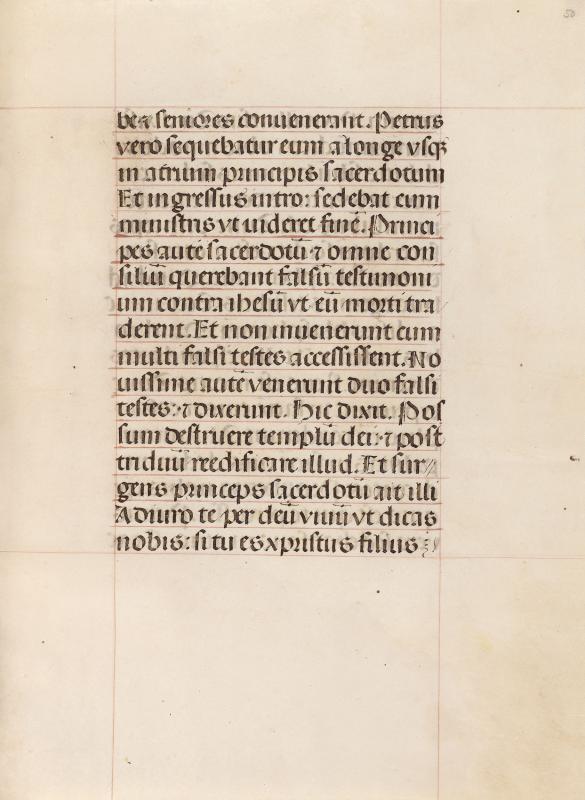 50
be ⁊ seniores conuenerant. Petrus
vero sequebatur eum a longe vsqꝫ
in atrium principis sacerdotum
Et ingressus intro: sedebat cum
ministris vt uideret finē. Princi
pes autē sacerdotū ⁊ omne con
siliū querebant falsū testimoni
um contra ihesū vt eū morti tra
derent. Et non inuenerunt cum
multi falsi testes accessissent. No
uissime autē venerunt duo falsi
testes: ⁊ dixerunt. Hic dixit. Pos
sum destruere templū dei: ⁊ post
triduū reedificare illud. Et sur//
gens princeps sacerdotū ait illi
Adiuro te per deū viuū vt dicas
nobis: si tu es xpristus filius